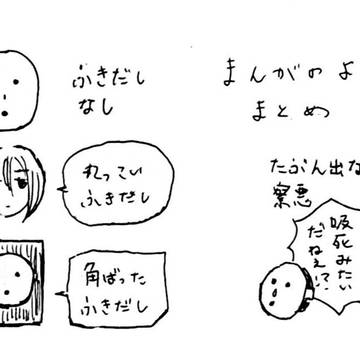 まんがのよ
まとめ
ふきだし
なし
丸っこい
ふきだし
角ばった
ふきだし
たぶん出な
吸死みたい
だねぇ!?